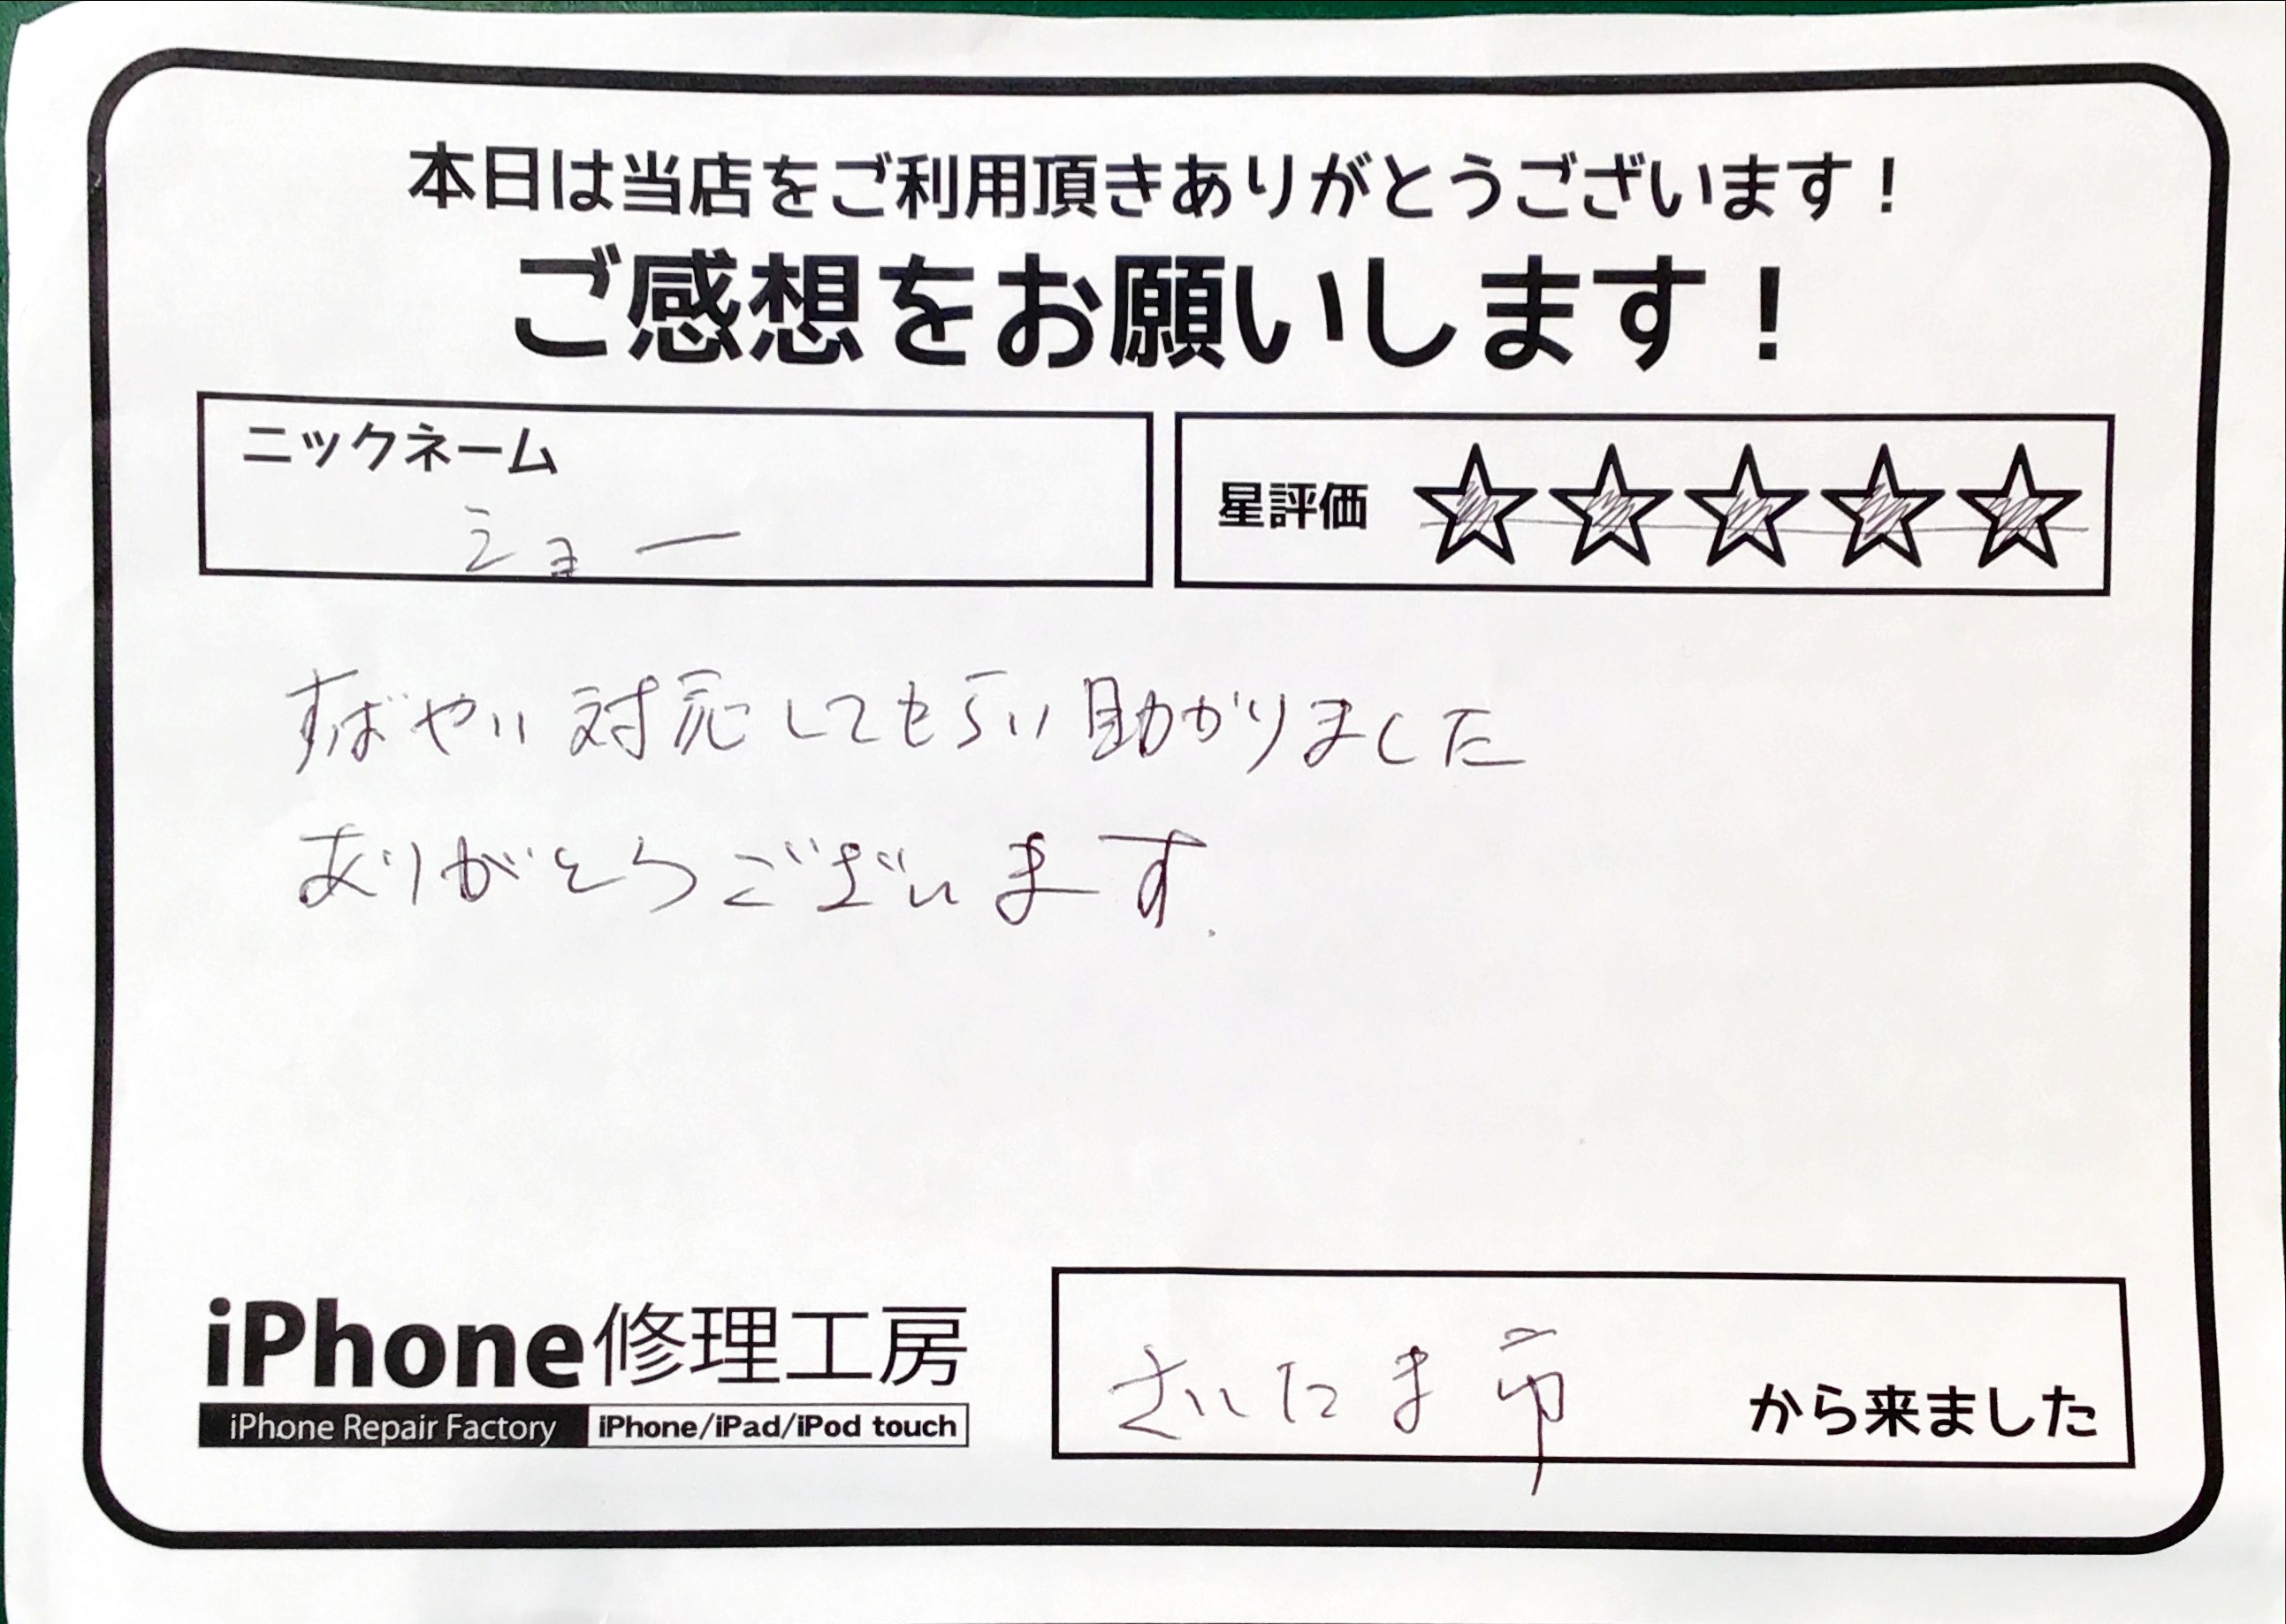 本日は当店をご利用頂きありがとうございます！
ご感想をお願いします！
ニックネーム
ショー
星評価 ☆☆☆☆☆
すばやい対応してもらい助かりました
ありがとうございます.
iPhone修理工房
iPhone Repair Factory iPhone/iPad/iPod touch
さいたま市 から来ました